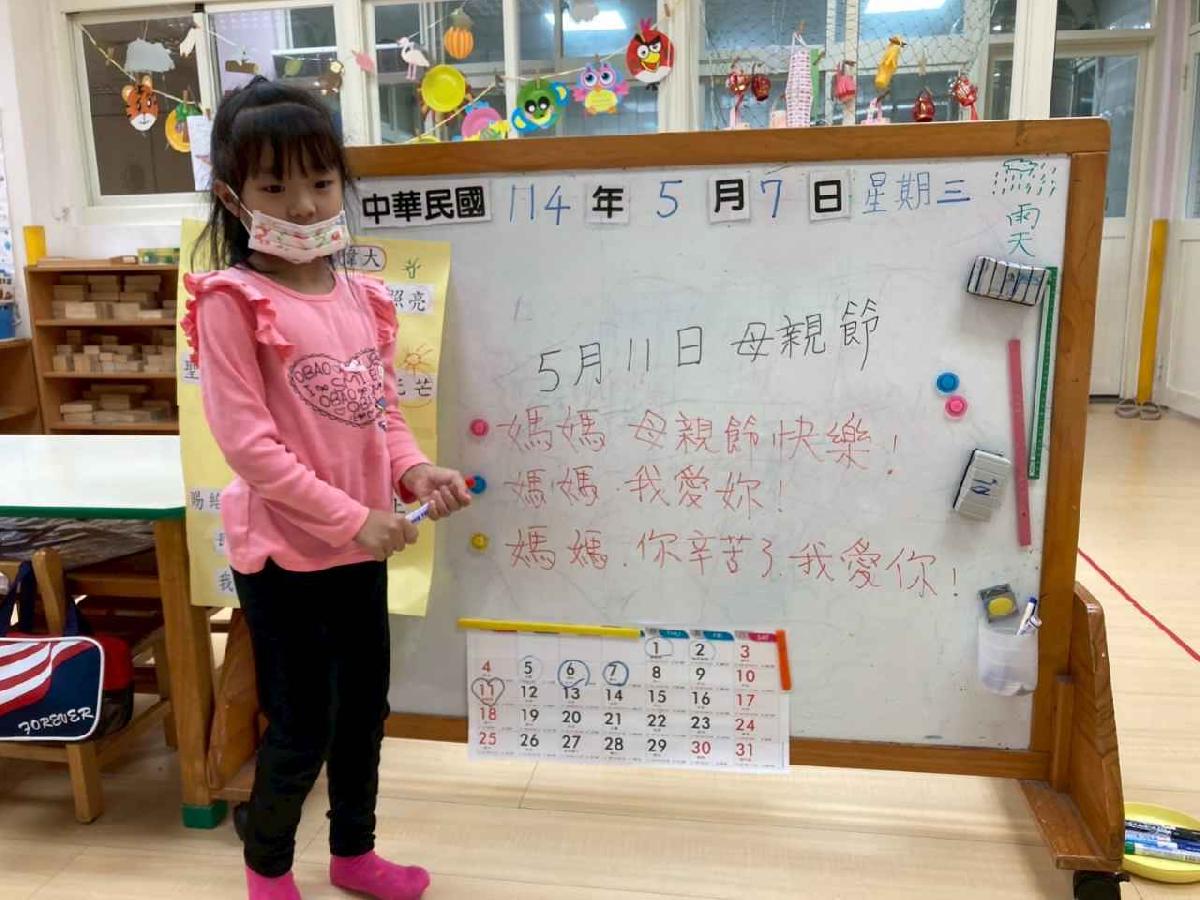 中華民國 114 年 5 月 7 日 星期三
雨天
5月11日 母親節
媽媽 母親節快樂!
媽媽.我愛妳!
媽媽.你辛苦了.我愛你!
偉大
照亮
光芒
賜給
上
我
THU FRI SAT
1 2 3
4 5 6 7 8 9 10
11 12 13 14 15 16 17
18 19 20 21 22 23 24
25 26 27 28 29 30 31
FOREVER